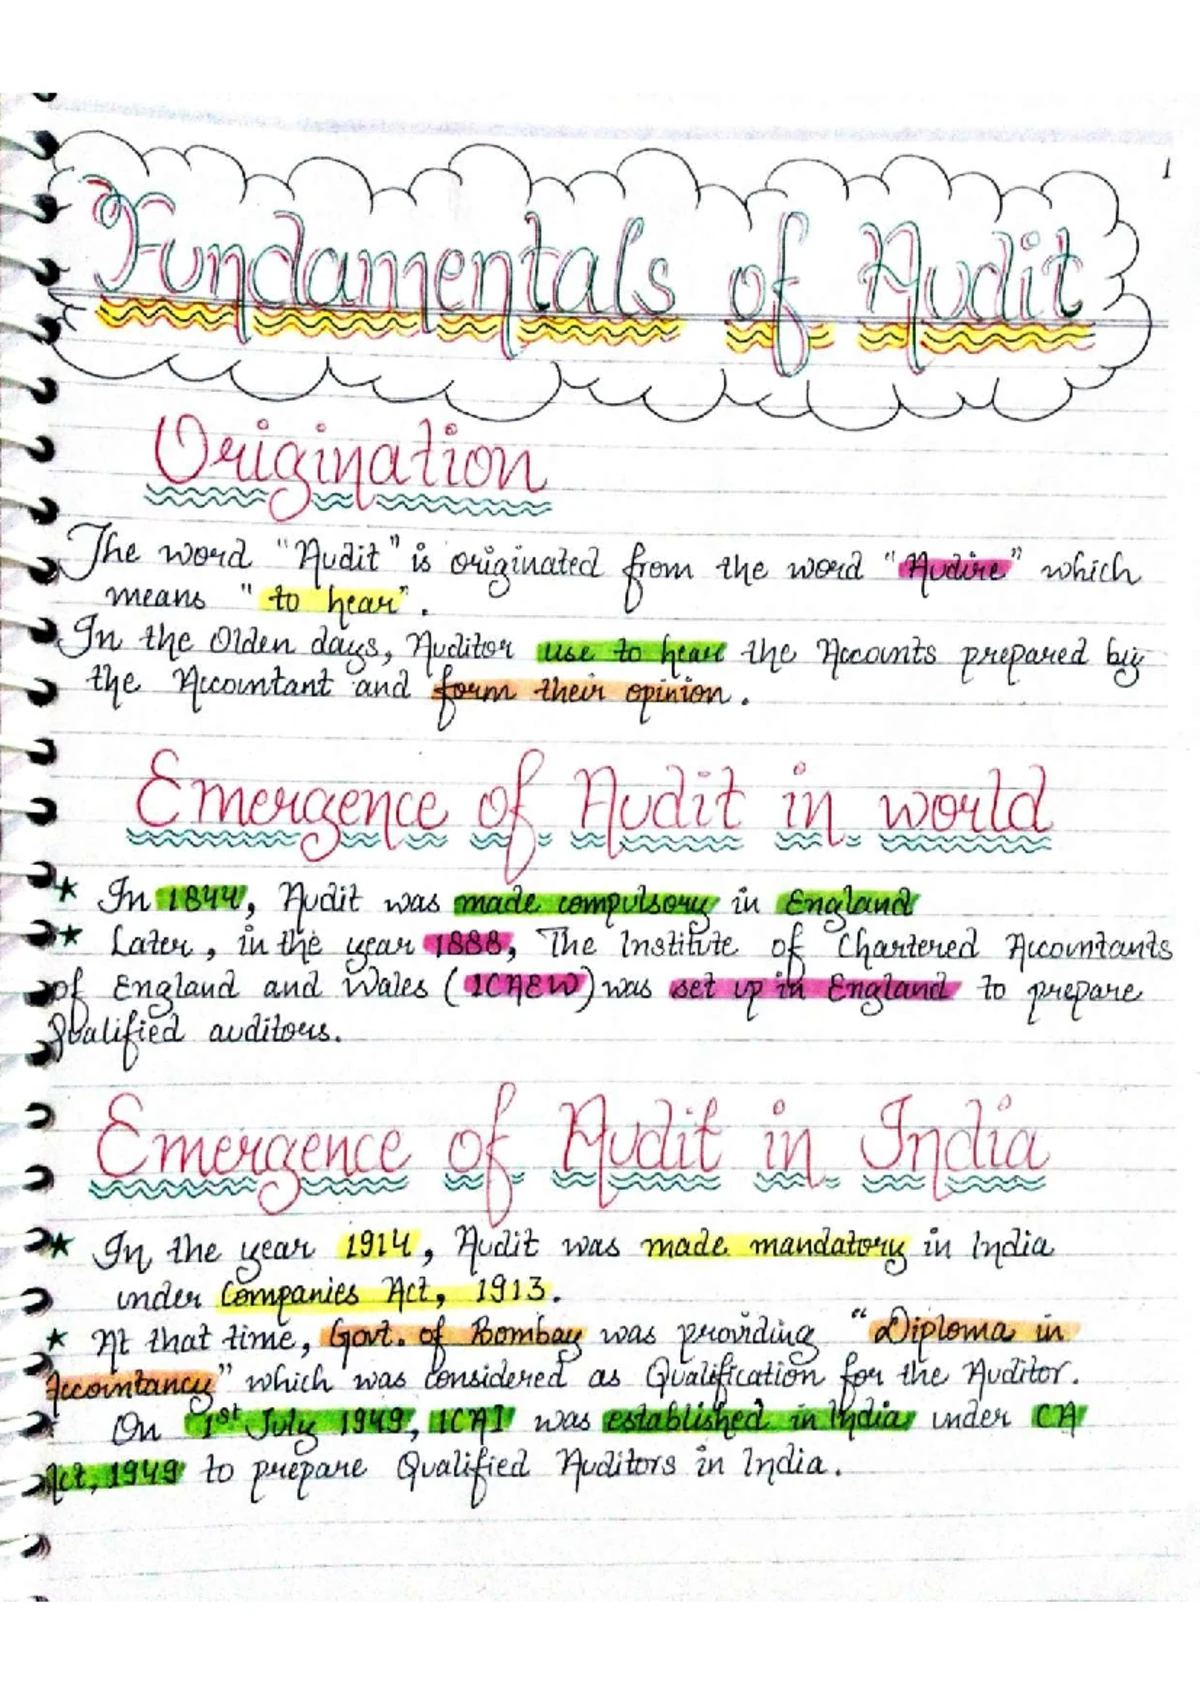 1
Fundamentals of Audit
Origination
The word "Audit" is originated from the word "Audire" which
means "to hear".
In the Olden days, Auditor use to hear the Accounts prepared by
the Accountant and form their opinion.
Emergence of Audit in world
★ In 1844, Audit was made compulsory in England
★ Later, in the year 1888, The Institute of Chartered Accountants
of England and Wales (ICAEW) was set up in England to prepare
Qualified auditors.
Emergence of Audit in India
★ In the year 1914, Audit was made mandatory in India
under Companies Act, 1913.
★ At that time, Govt. of Bombay was providing "Diploma in
Accountancy" which was considered as Qualification for the Auditor.
★ On 1st July 1949, ICAI was established in India under CA
Act, 1949 to prepare Qualified Auditors in India.